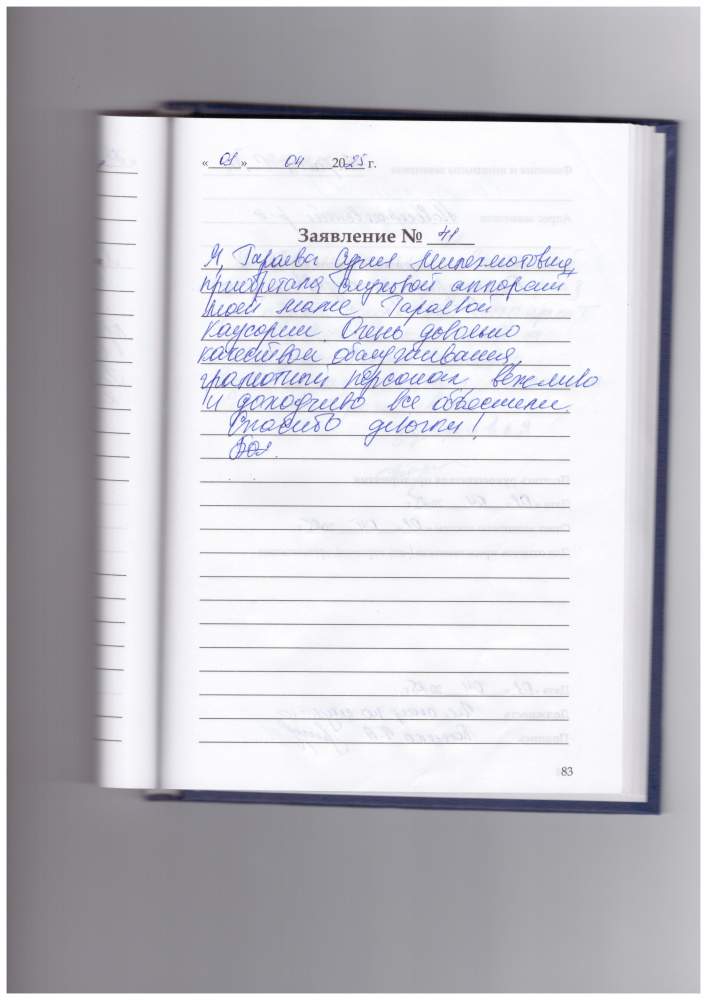 «01» 04 2025 г.
Заявление № 41
Я, Гараева
приобретала слуховой аппарат
моей маме Гараевой
Каусарии. Очень довольна
качеством обслуживания,
грамотный персонал, вежливо
и доходчиво все объяснили.
Спасибо девочки!
83